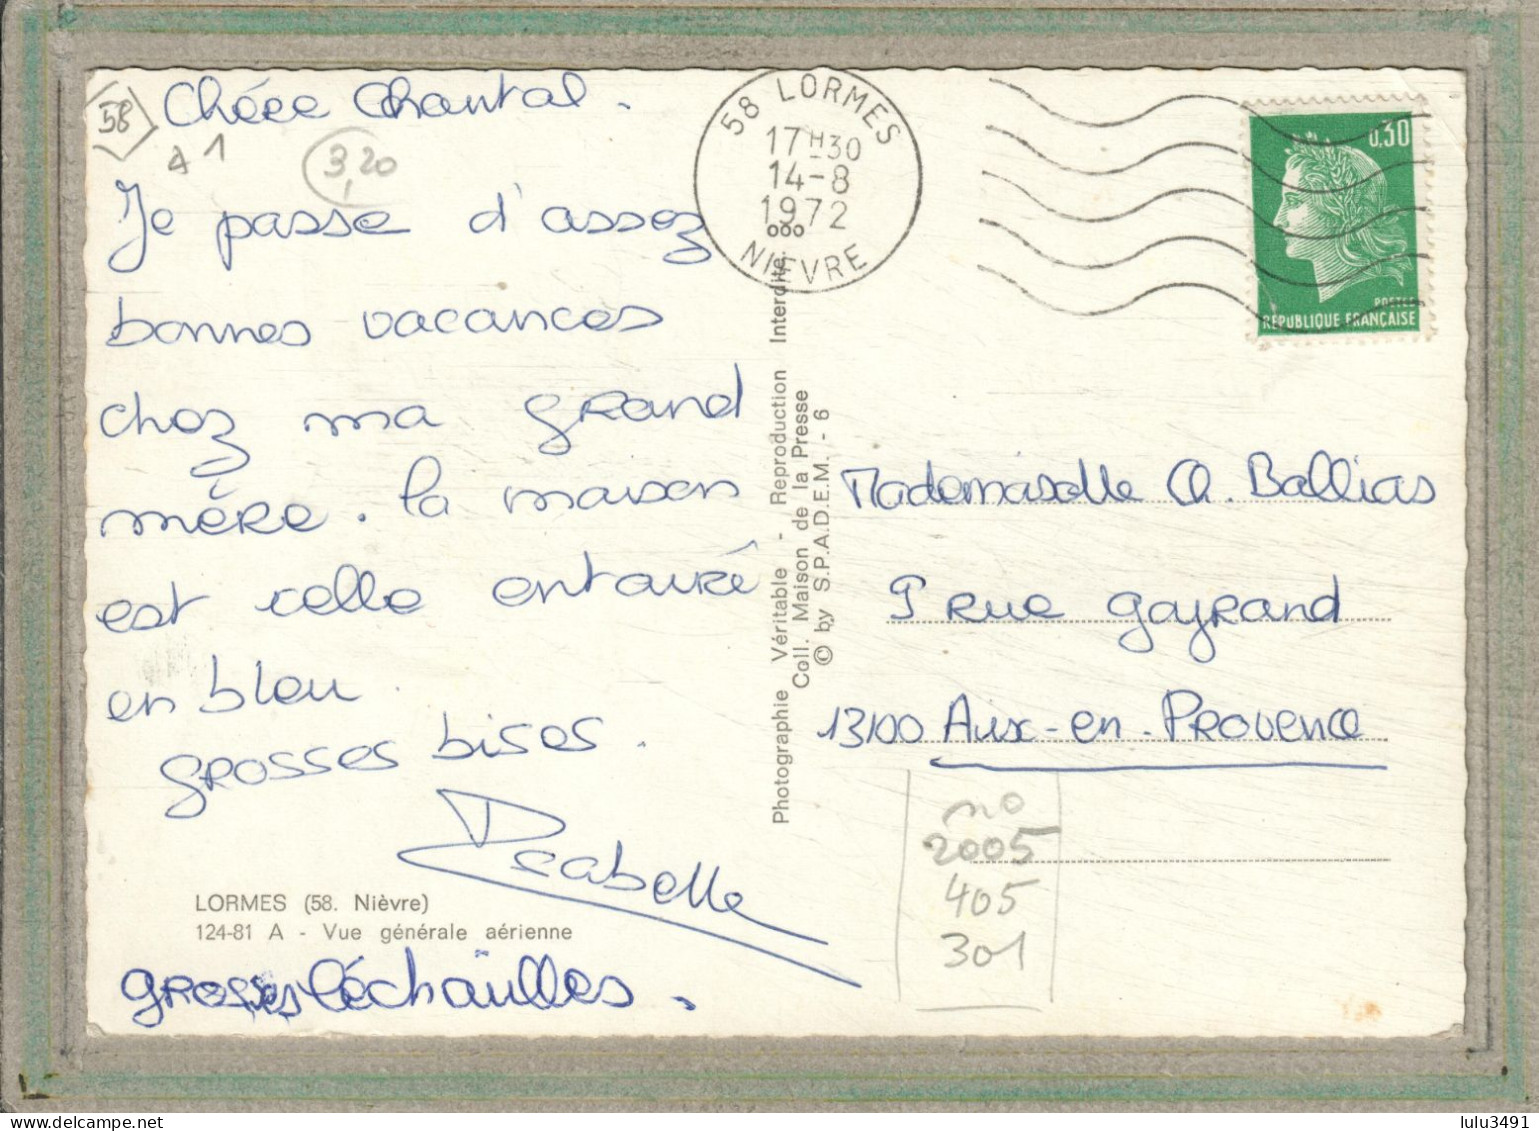 58
Chère Chantal.
A 1
3,20
Je passe d'assez
bonnes vacances
chez ma grand
mère. la maison
est celle entouré
en bleu.
grosses bises.
Isabelle
LORMES (58. Nièvre)
124-81 A - Vue générale aérienne
grosses léchouilles.
58 LORMES
17H30
14-8
1972
NIEVRE
Photographie Véritable - Reproduction Interdite.
Coll. Maison de la Presse
© by S.P.A.D.E.M. - 6
0,30
POSTES
RÉPUBLIQUE FRANÇAISE
Mademoiselle Ch. Ballias
9 rue Gayrand
13100 Aix-en-Provence
no
2005
405
301
lulu3491